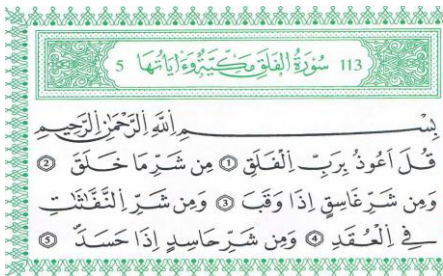 113 سُورَةُ الْفَلَقِ مَكِّيَّةٌ وَءَايَاتُهَا 5
بِسْمِ اِللَّهِ اِلرَّحْمَٰنِ اِلرَّحِيمِ
قُلَ اَعُوذُ بِرَبِّ اِلْفَلَقِ ① مِن شَرِّ مَا خَلَقَ ②
وَمِن شَرِّ غَاسِقٍ اِذَا وَقَبَ ③ وَمِن شَرِّ اِلنَّفَّٰثَٰتِ
فِے اِلْعُقَدِ ④ وَمِن شَرِّ حَاسِدٍ اِذَا حَسَدَ ⑤